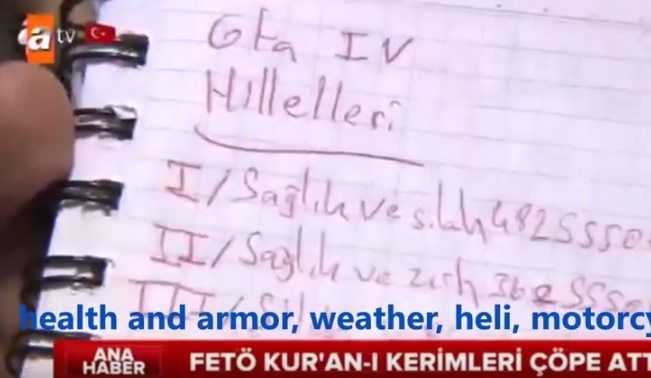 atv
Gta IV
Hilleleri
I/Sağlık ve silah 482555
II/Sağlık ve zırh 362555
III/
health and armor, weather, heli, motorcy
ANA HABER
FETÖ KUR'AN-I KERİMLERİ ÇÖPE ATT